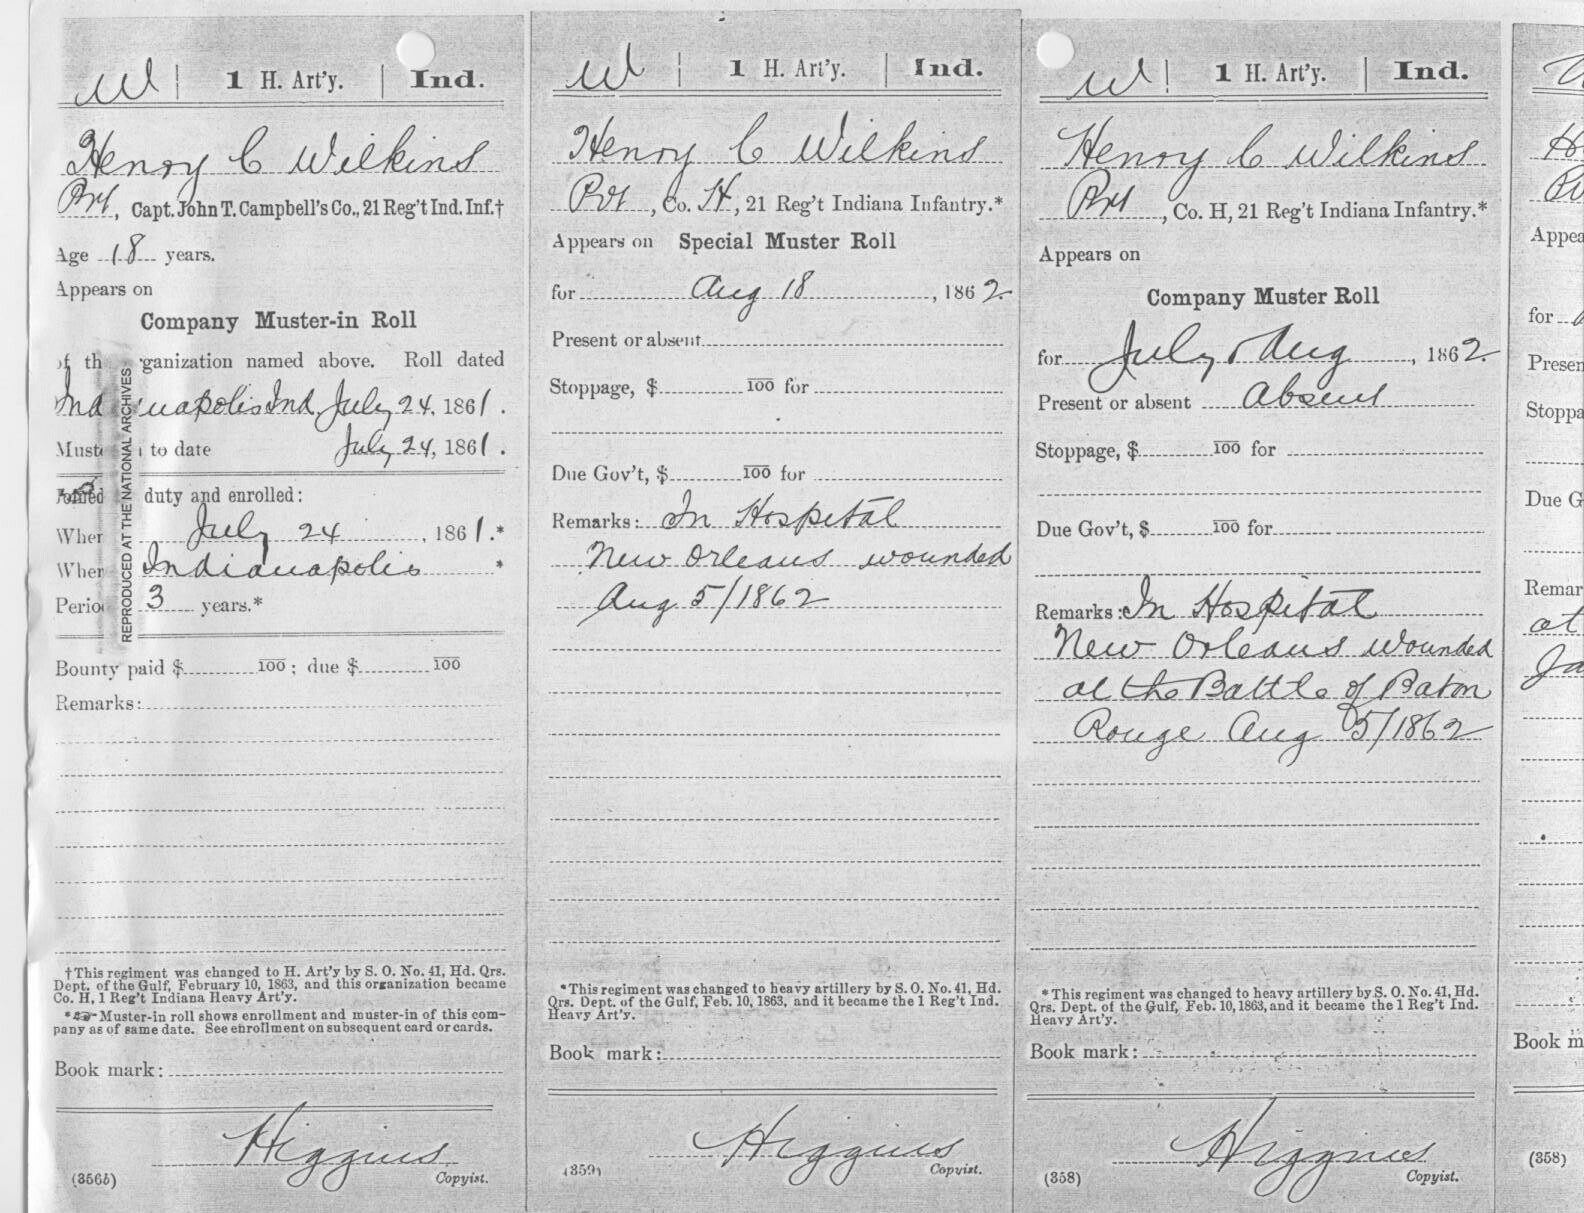 W | 1 H. Art'y. | Ind.
Henry C Wilkins
Pvt, Capt. John T. Campbell's Co., 21 Reg't Ind. Inf.†
Age 18 years.
Appears on
Company Muster-in Roll
of th rganization named above. Roll dated
Ind uapolis Ind, July 24, 1861.
Muste to date July 24, 1861.
Joined duty and enrolled:
Wher July 24, 1861.*
Wher Indianapolis *
Perio 3 years.*
Bounty paid $ 100; due $ 100
Remarks:
†This regiment was changed to H. Art'y by S. O. No. 41, Hd. Qrs.
Dept. of the Gulf, February 10, 1863, and this organization became
Co. H, 1 Reg't Indiana Heavy Art'y.
*☞Muster-in roll shows enrollment and muster-in of this com-
pany as of same date. See enrollment on subsequent card or cards.
Book mark:
Higgins
(356b) Copyist.
REPRODUCED AT THE NATIONAL ARCHIVES
W | 1 H. Art'y. | Ind.
Henry C Wilkins
Pvt, Co. H, 21 Reg't Indiana Infantry.*
Appears on Special Muster Roll
for Aug 18, 1862
Present or absent
Stoppage, $ 100 for
Due Gov't, $ 100 for
Remarks: In Hospital
New Orleans wounded
Aug 5/1862
*This regiment was changed to heavy artillery by S. O. No. 41, Hd.
Qrs. Dept. of the Gulf, Feb. 10, 1863, and it became the 1 Reg't Ind.
Heavy Art'y.
Book mark:
Higgins
(359) Copyist.
W | 1 H. Art'y. | Ind.
Henry C Wilkins
Pvt, Co. H, 21 Reg't Indiana Infantry.*
Appears on
Company Muster Roll
for July & Aug, 1862
Present or absent Absent
Stoppage, $ 100 for
Due Gov't, $ 100 for
Remarks: In Hospital
New Orleans wounded
at the Battle of Baton
Rouge Aug 5/1862
*This regiment was changed to heavy artillery by S. O. No. 41, Hd.
Qrs. Dept. of the Gulf, Feb. 10, 1863, and it became the 1 Reg't Ind.
Heavy Art'y.
Book mark:
Higgins
(358) Copyist.
Appea
for
Presen
Stoppa
Due G
Remar
at
Ja
Book m
(358)